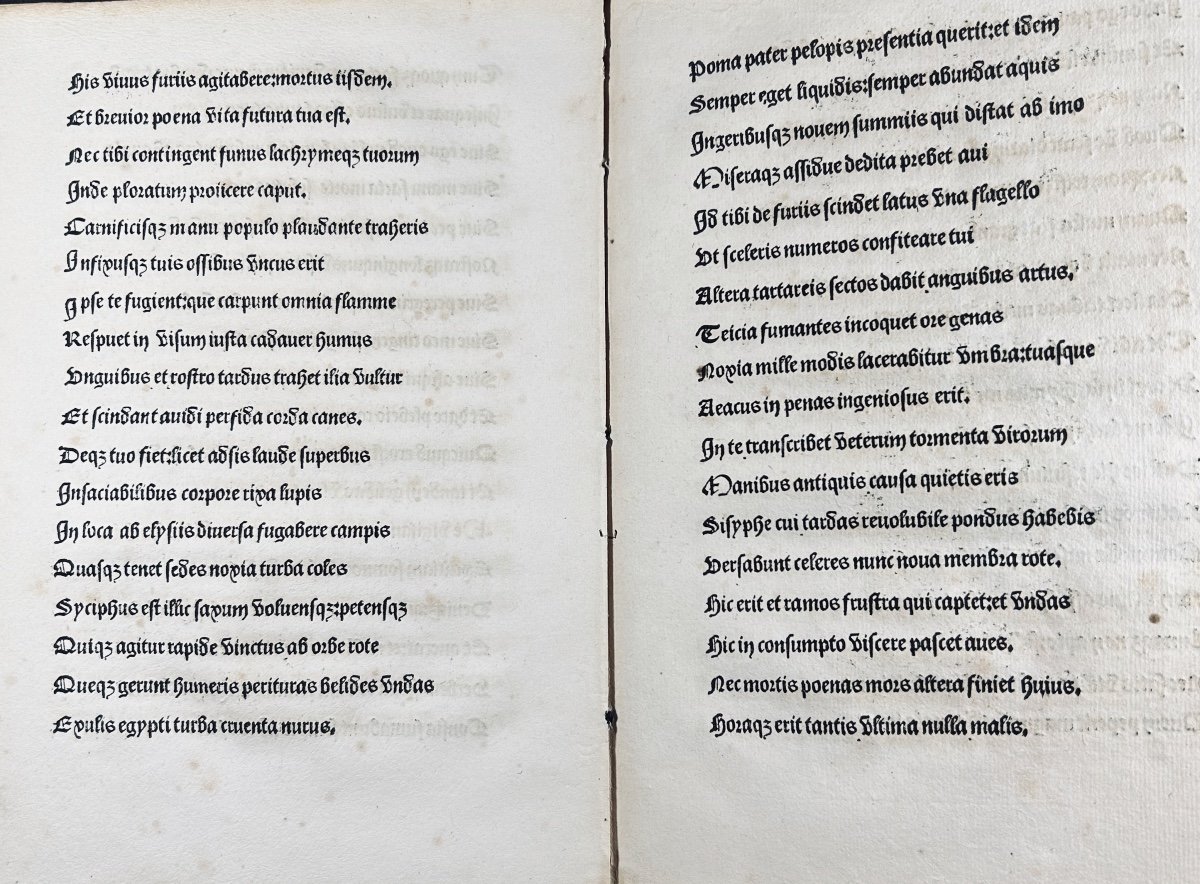 His viuus furiis agitabere:mortus iisdem.
Et breuior poena vita futura tua est.
Nec tibi contingent funus lachrymeqꝫ tuorum
Inde ploratum proiicere caput.
Carnificisqꝫ manu populo plaudante traheris
Infixusqꝫ tuis ossibus vncus erit
Ipse te fugient:que carpunt omnia flamme
Respuet in visum iusta cadauer humus
Vnguibus et rostro tardus trahet ilia vultur
Et scindant auidi perfida corda canes.
Deqꝫ tuo fiet:licet adsis laude superbus
Insaciabilibus corpore rixa lupis
In loca ab elysiis diuersa fugabere campis
Quasqꝫ tenet sedes noxia turba coles
Syciphus est illic saxum voluensqꝫ:petensqꝫ
Quiqꝫ agitur rapide vinctus ab orbe rote
Queqꝫ gerunt humeris perituras belides vndas
Exulis egypti turba cruenta nurus.
Poma pater pelopis presentia querit:et idem
Semper eget liquidis:semper abundat aquis
Ingeribusqꝫ nouem summiis qui distat ab imo
Miseraqꝫ assidue dedita prebet aui
Id tibi de furiis scindet latus vna flagello
Vt sceleris numeros confiteare tui
Altera tartareis sectos dabit anguibus artus.
Teicia fumantes incoquet ore genas
Noxia mille modis lacerabitur vmbra:tuasque
Aeacus in penas ingeniosus erit.
In te transcribet veterum tormenta virorum
Manibus antiquis causa quietis eris
Sisyphe cui tardas reuolubile pondus habebis
Versabunt celeres nunc noua membra rote.
Hic erit et ramos frustra qui captet:et vndas
Hic in consumpto viscere pascet aues.
Nec mortis poenas mors altera finiet huius.
Horaqꝫ erit tantis vltima nulla malis.